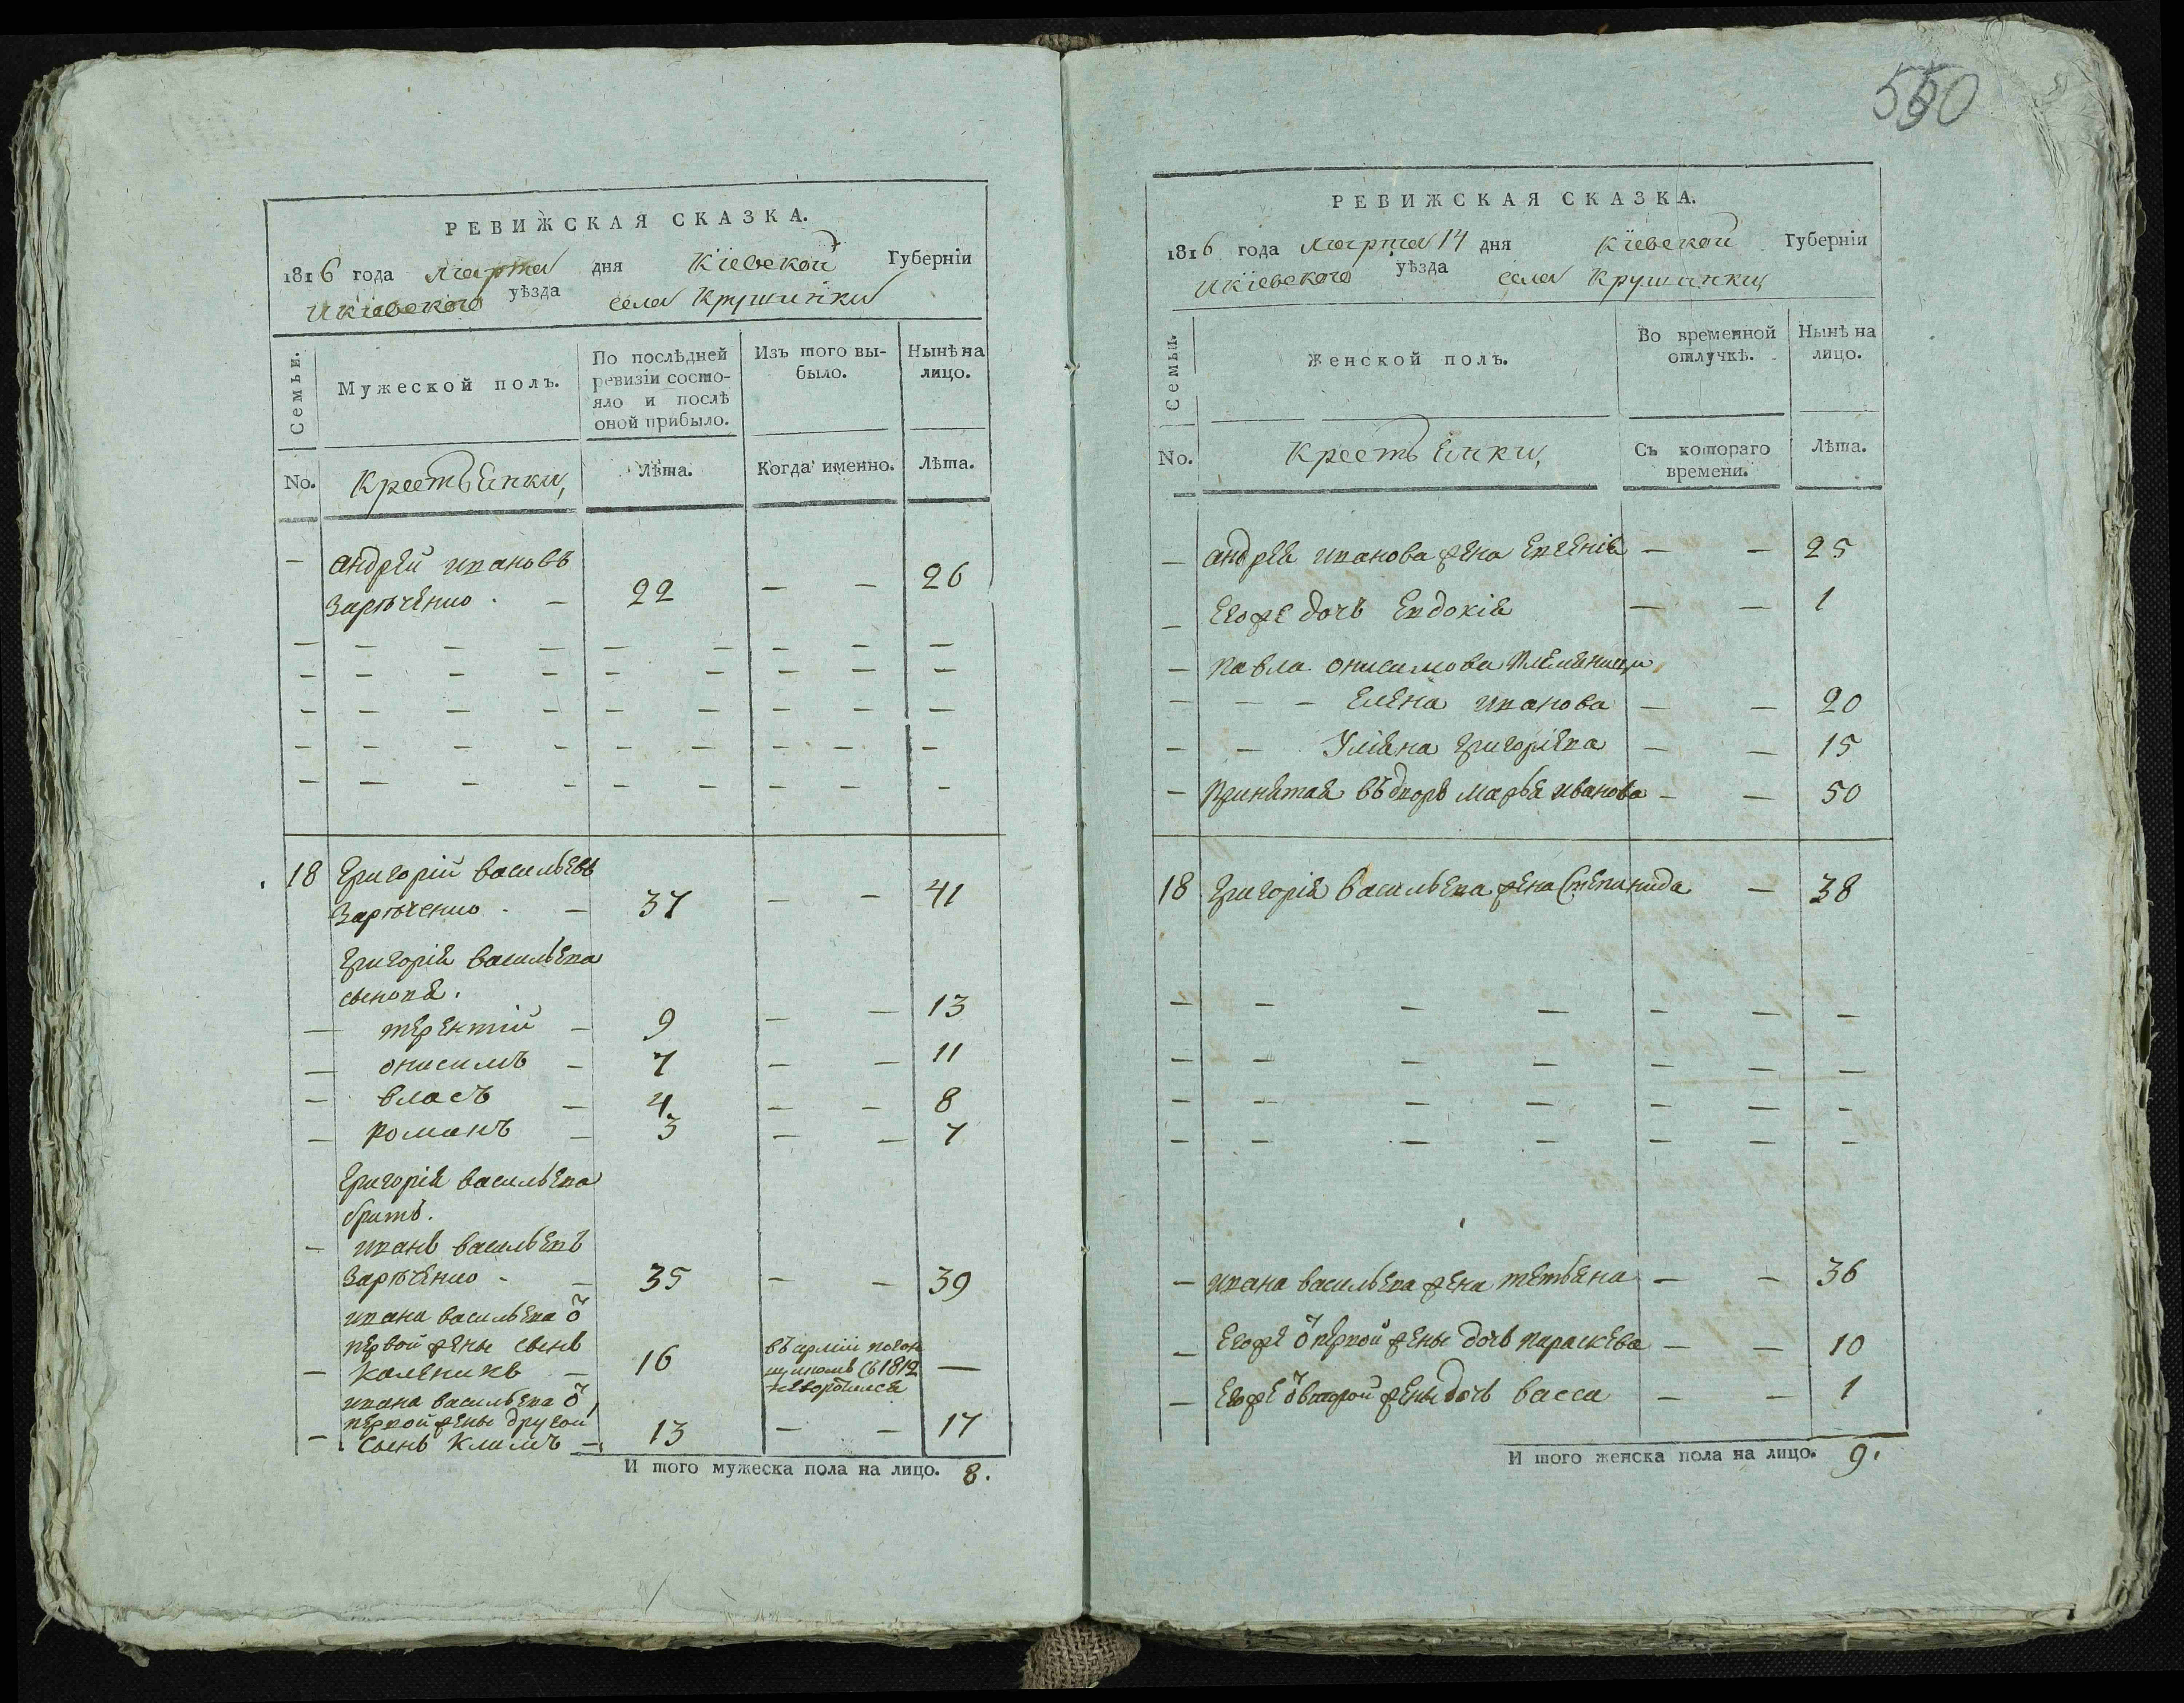 550
РЕВИЖСКАЯ СКАЗКА.
1816 года марта дня Кіевской Губерніи
и кіевского уѣзда села Крушинки
Семьи.
Мужеской полъ.
По послѣдней ревизіи состо-
яло и послѣ
оной прибыло.
Изъ того вы-
было.
Нынѣ на
лицо.
No.
Крестьянки,
Лѣта.
Когда именно.
Лѣта.
— андрей ивановъ
зарѣченко . — 22 — — 26
— — — — — — — — —
— — — — — — — — —
— — — — — — — — —
— — — — — — — — —
— — — — — — — — —
18 григорій васильевъ
зарѣченко . — 37 — — 41
григорія васильева
сынопя .
— терентій — 9 — — 13
— онисимъ — 7 — — 11
— власъ — 4 — — 8
— романъ — 3 — — 7
григорія васильева
братъ .
— иванъ васильевъ
зарѣченко - — 35 — — 39
ивана васильева ѿ
первой жены сынъ
— каленикъ — 16 въ арміи погон
щикомъ съ 1812
невортился —
ивана васильева ѿ
первой жены другой
— сынъ климъ — 13 — — 17
И того мужеска пола на лицо. 8.
РЕВИЖСКАЯ СКАЗКА.
1816 года марта 14 дня кіевской Губерніи
и кіевского уѣзда села Крушинки
Семьи.
Женской полъ.
Во временной
отлучкѣ.
Нынѣ на
лицо.
No.
Крестьянки,
Съ котораго
времени.
Лѣта.
— андрея иванова жена евгенія — — 25
— егоже дочь евдокія — — 1
— павла онисимова племяници
— — — елена иванова — — 20
— — Уліяна григоріева — — 15
— принятая въ дворъ марья иванова — — 50
18 григорія васильева жена степанида — 38
— — — — — — —
— — — — — — —
— — — — — — —
— — — — — — —
— ивана васильева жена тетьяна — — 36
— егоже ѿ первой жены дочь параскева — — 10
— егоже ѿ второй жены дочь васса — — 1
И того женска пола на лицо. 9.